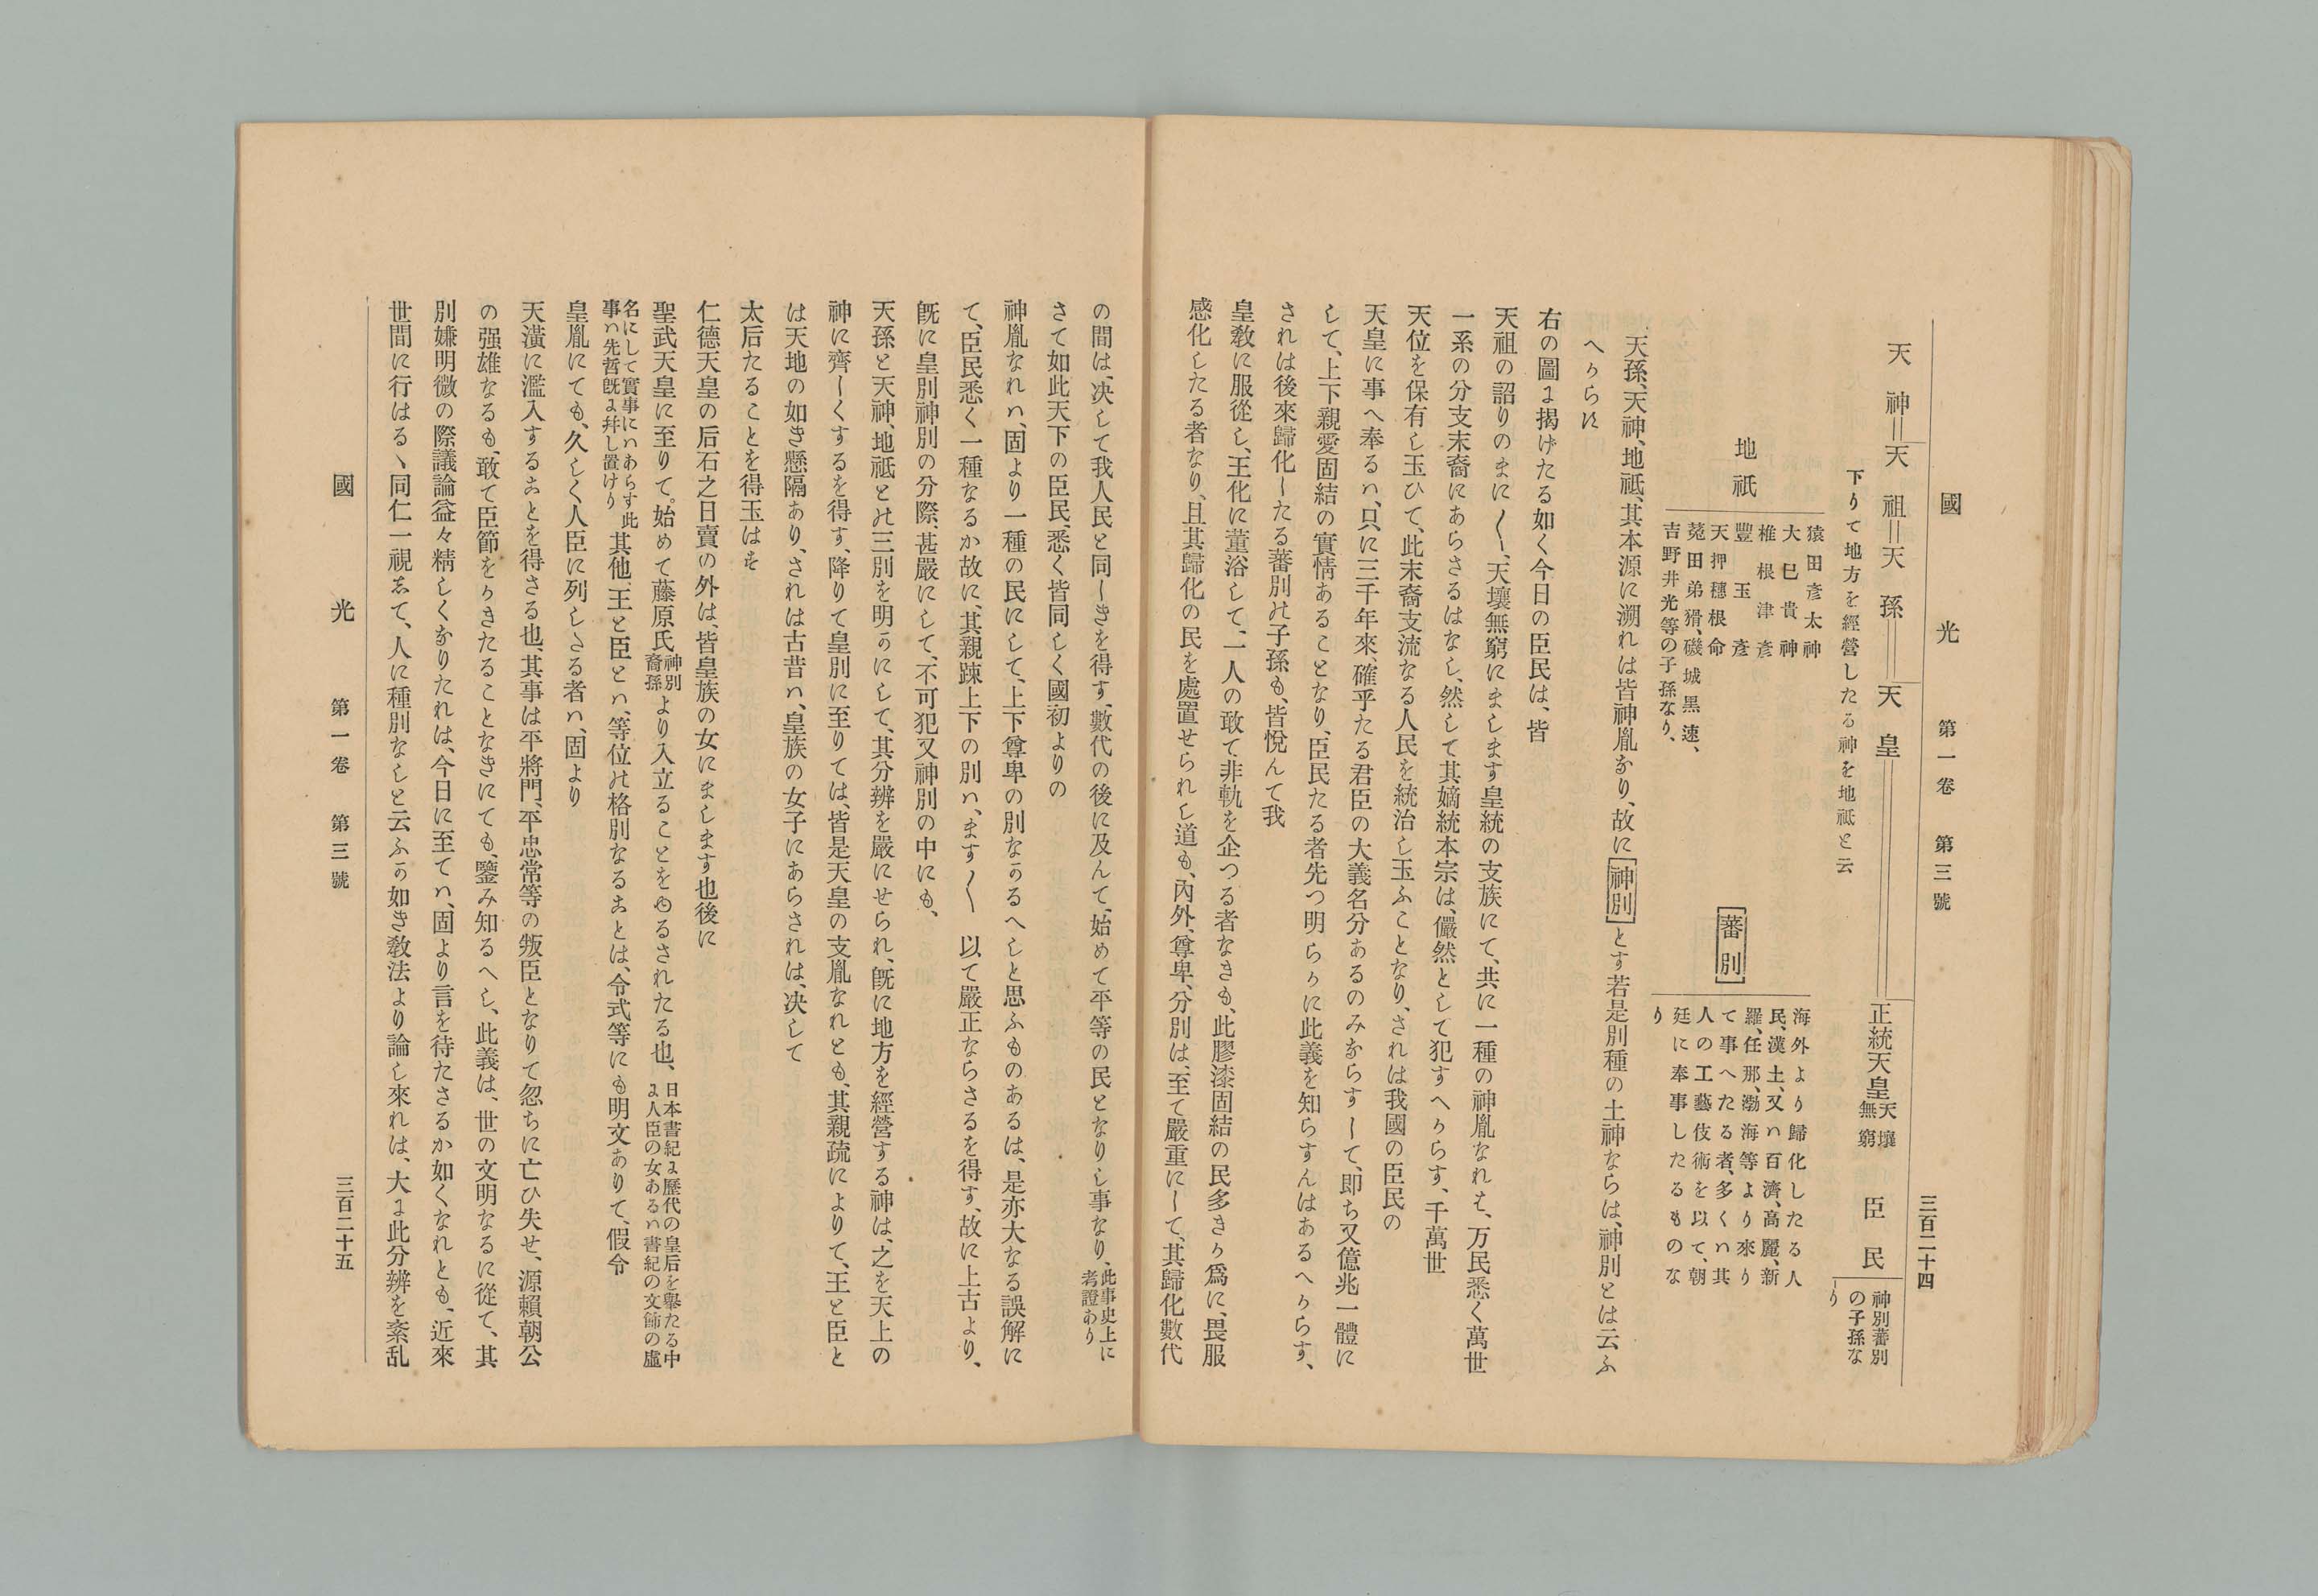 國光 第一卷 第三號 三百二十四
天神＝天祖＝天孫＝天皇＝正統天皇 天壤無窮 臣民 神別蕃別の子孫なり
下りて地方を經營したる神を地祗と云
地祇
猿田彥太神
大巳貴神
椎根津彥
豐玉彥
天押穗根命
菟田弟猾、磯城黒速、
吉野井光等の子孫なり、
蕃別
海外より歸化したる人
民、漢土、又ハ百濟、高麗、新
羅、任那、渤海等より來り
て事へたる者、多くハ其
人の工藝伎術を以て、朝
廷に奉事したるものな
り
天孫、天神、地祗、其本源に溯れは皆神胤なり、故に神別とす若是別種の土神ならは、神別とは云ふ
へからに
右の圖に揭げたる如く今日の臣民は、皆
天祖の詔りのまに〱、天壤無窮にまします皇統の支族にて、共に一種の神胤なれは、万民悉く萬世
一系の分支末裔にあらさるはなし、然して其嫡統本宗は、儼然として犯すへからす、千萬世
天位を保有し玉ひて、此末裔支流なる人民を統治し玉ふことなり、されは我國の臣民の
天皇に事へ奉るハ、只に三千年來、確乎たる君臣の大義名分あるのみならすして、卽ち又億兆一體に
して、上下親愛固結の實情あることなり、臣民たる者先つ明らかに此義を知らすんはあるへからす、
されは後來歸化したる蕃別の子孫も、皆悅んて我
皇敎に服從し、王化に薰浴して、一人の敢て非軌を企つる者なきも、此膠漆固結の民多きか爲に、畏服
感化したる者なり、且其歸化の民を處置せられし道も、內外、尊卑、分別は、至て嚴重にして、其歸化數代
の間は、决して我人民と同しきを得す、數代の後に及んて、始めて平等の民となりし事なり、此事史上に考證あり
さて如此天下の臣民、悉く皆同しく國初よりの
神胤なれハ、固より一種の民にして、上下尊卑の別なかるへしと思ふものあるは、是亦大なる誤解に
て、臣民悉く一種なるか故に、其親踈上下の別ハ、ます〱 以て嚴正ならさるを得す、故に上古より、
旣に皇別神別の分際、甚嚴にして、不可犯又神別の中にも、
天孫と天神、地祗との三別を明かにして、其分辨を嚴にせられ、旣に地方を經營する神は、之を天上の
神に齊しくするを得す、降りて皇別に至りては、皆是天皇の支胤なれとも、其親疏によりて、王と臣と
は天地の如き懸隔あり、されは古昔ハ、皇族の女子にあらされは、决して
太后たることを得玉はを
仁德天皇の后石之日賣の外は、皆皇族の女にまします也後に
聖武天皇に至りて。始めて藤原氏神別裔孫より入立ることをゆるされたる也、日本書紀に歷代の皇后を擧たる中に人臣の女あるハ書紀の文飾の虛
名にして實事にハあらす此事ハ先哲旣に辨し置けり其他、王と臣とハ、等位の格別なることは、令式等にも明文ありて、假令
皇胤にても、久しく人臣に列しさる者ハ、固より
天潢に濫入することを得さる也、其事は平將門、平忠常等の叛臣となりて忽ちに亡ひ失せ、源賴朝公
の强雄なるも、敢て臣節をかきたることなきにても、鑒み知るへし、此義は、世の文明なるに從て、其
別嫌明微の際議論益々精しくなりたれは、今日に至てハ、固より言を待たさるか如くなれとも、近來
世間に行はるヽ同仁一視志て、人に種別なしと云ふか如き敎法より論し來れは、大に此分辨を紊乱
國光 第一卷 第三號 三百二十五